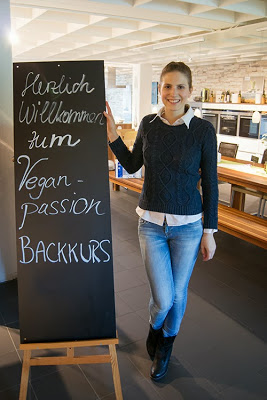 Herzlich
Willkommen
zum
Vegan-
passion
BACKKURS